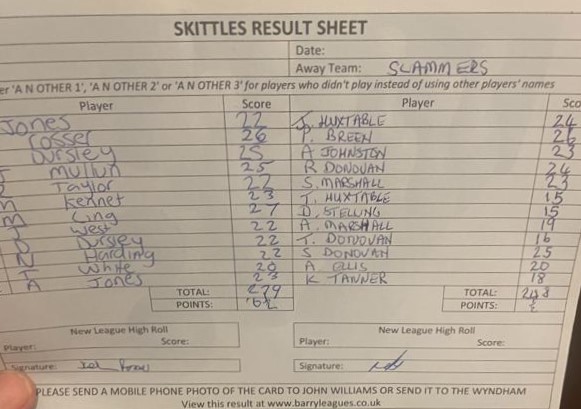 SKITTLES RESULT SHEET
Date:
Away Team: SLAMMERS
er 'A N OTHER 1', 'A N OTHER 2' or 'A N OTHER 3' for players who didn't play instead of using other players' names
Player Score Player Sco
Jones 22 J. HUXTABLE 24
rosser 26 P. BREEN 26
Dursley 25 A JOHNSTON 23
Mullun 25 R DONOVAN 24
Taylor 22 S. MARSHALL 23
Kennet 23 T. HUXTABLE 15
M Ling 27 D. STELLING 15
West 22 A. MARSHALL 19
D Dursley 22 T. DONOVAN 16
N Harding 22 S DONOVAN 25
T White 20 A. ELLIS 20
A Jones 23 K TANNER 18
TOTAL: 279 TOTAL: 248
POINTS: POINTS:
New League High Roll New League High Roll
Player: Score: Player: Score:
Signature: Signature:
PLEASE SEND A MOBILE PHONE PHOTO OF THE CARD TO JOHN WILLIAMS OR SEND IT TO THE WYNDHAM
View this result at www.barryleagues.co.uk